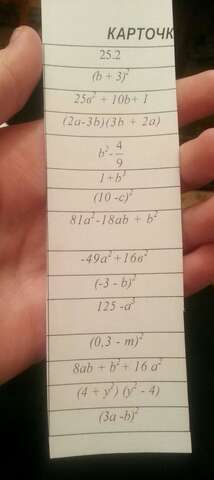 КАРТОЧК
25.2
(b + 3)²
25в² + 10b+ 1
(2a-3b)(3b + 2a)
b²-4/9
1+b³
(10 -c)²
81a²-18ab + b²
-49a²+16в²
(-3 - b)²
125 -a³
(0,3 - m)²
8ab + b² + 16 a²
(4 + y²) (y² - 4)
(3a -b)²